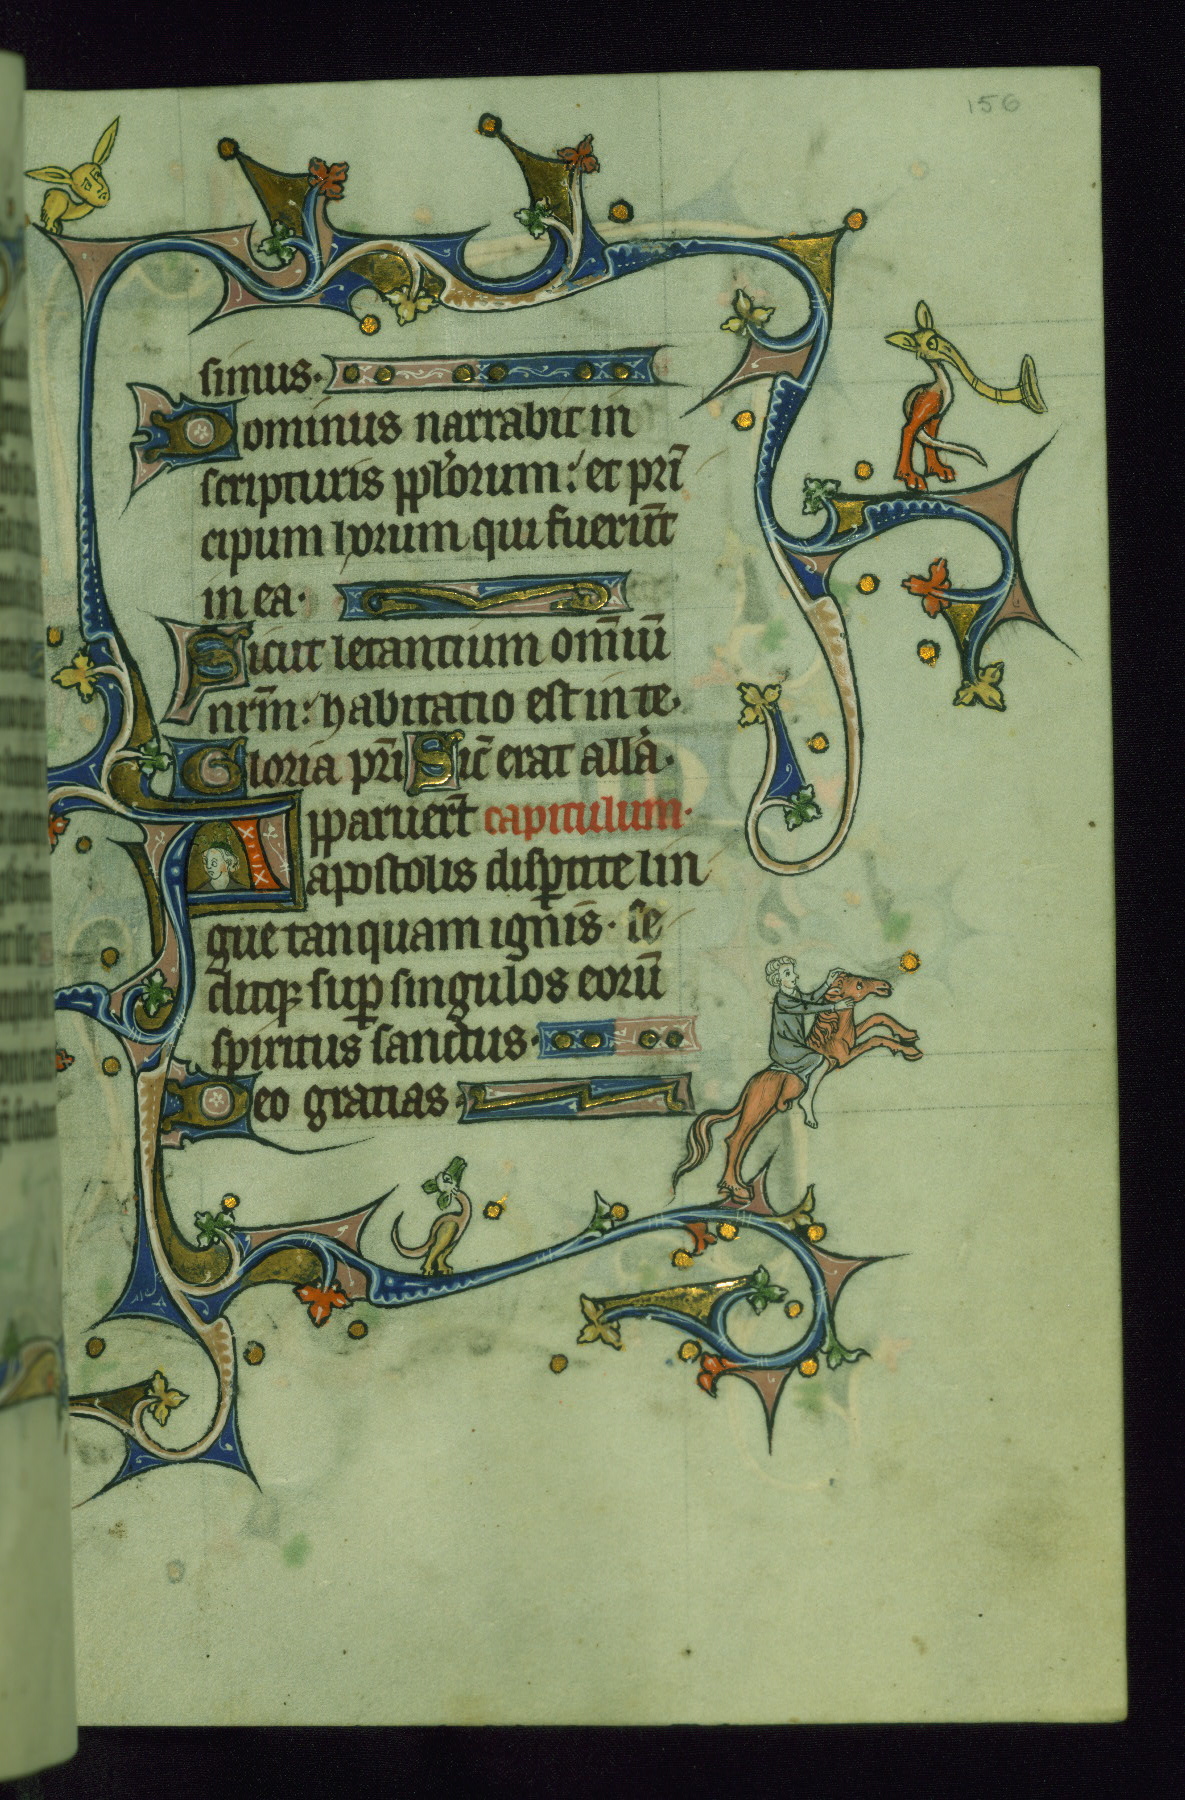 156
simus·
Dominus narrabit in
scripturis pplorum: et pri
cipum horum qui fuerūt
in ea·
Sicut letantium om̄iū
nr̄m: habitatio est in te·
Gloria pr̄i Sic̄ erat alla·
Apparuer̄t capitulum·
apostolis dispertite lin
gue tanquam ignis· se
ditq; sup singulos eorū
spiritus sanctus·
Deo gratias